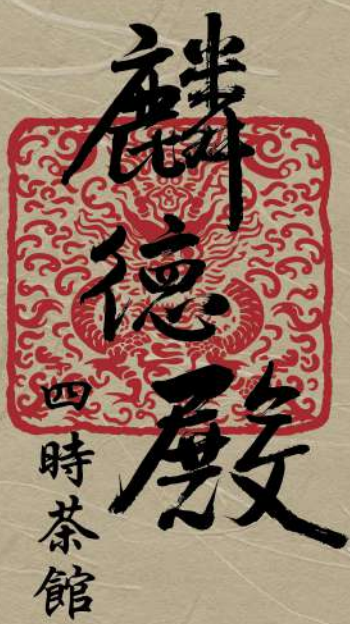 麟德殿
四時茶館